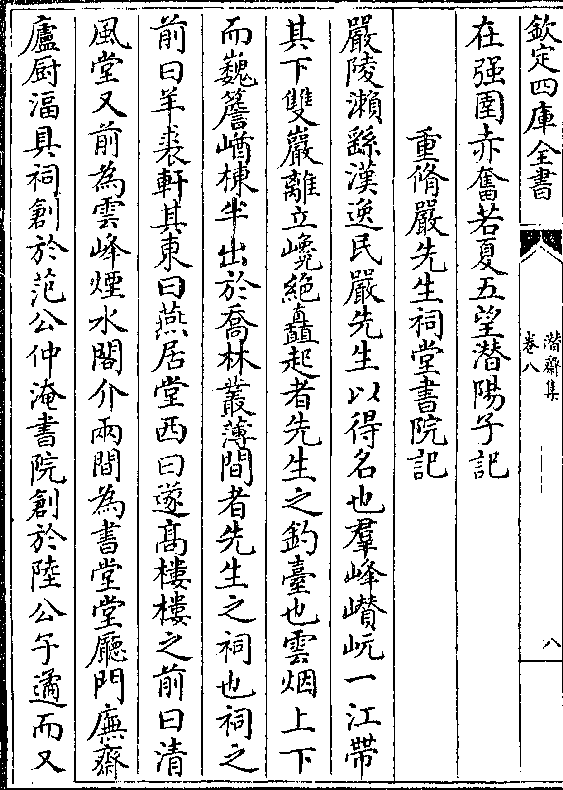 欽定四庫全書
潛齋集
卷八
八
在强圉赤奮若夏五望潛陽子記
重脩嚴先生祠堂書院記
嚴陵瀨繇漢逸民嚴先生以得名也羣峰巑岏一江帶
其下雙巖離立巉絶矗起者先生之釣臺也雲烟上下
而巍簷崷棟半出於喬林叢薄間者先生之祠也祠之
前曰羊裘軒其東曰燕居堂西曰邃髙樓樓之前曰清
風堂又前為雲峰煙水閣介兩間為書堂堂廳門廡齋
廬厨湢具祠創於范公仲淹書院創於陸公子遹而又